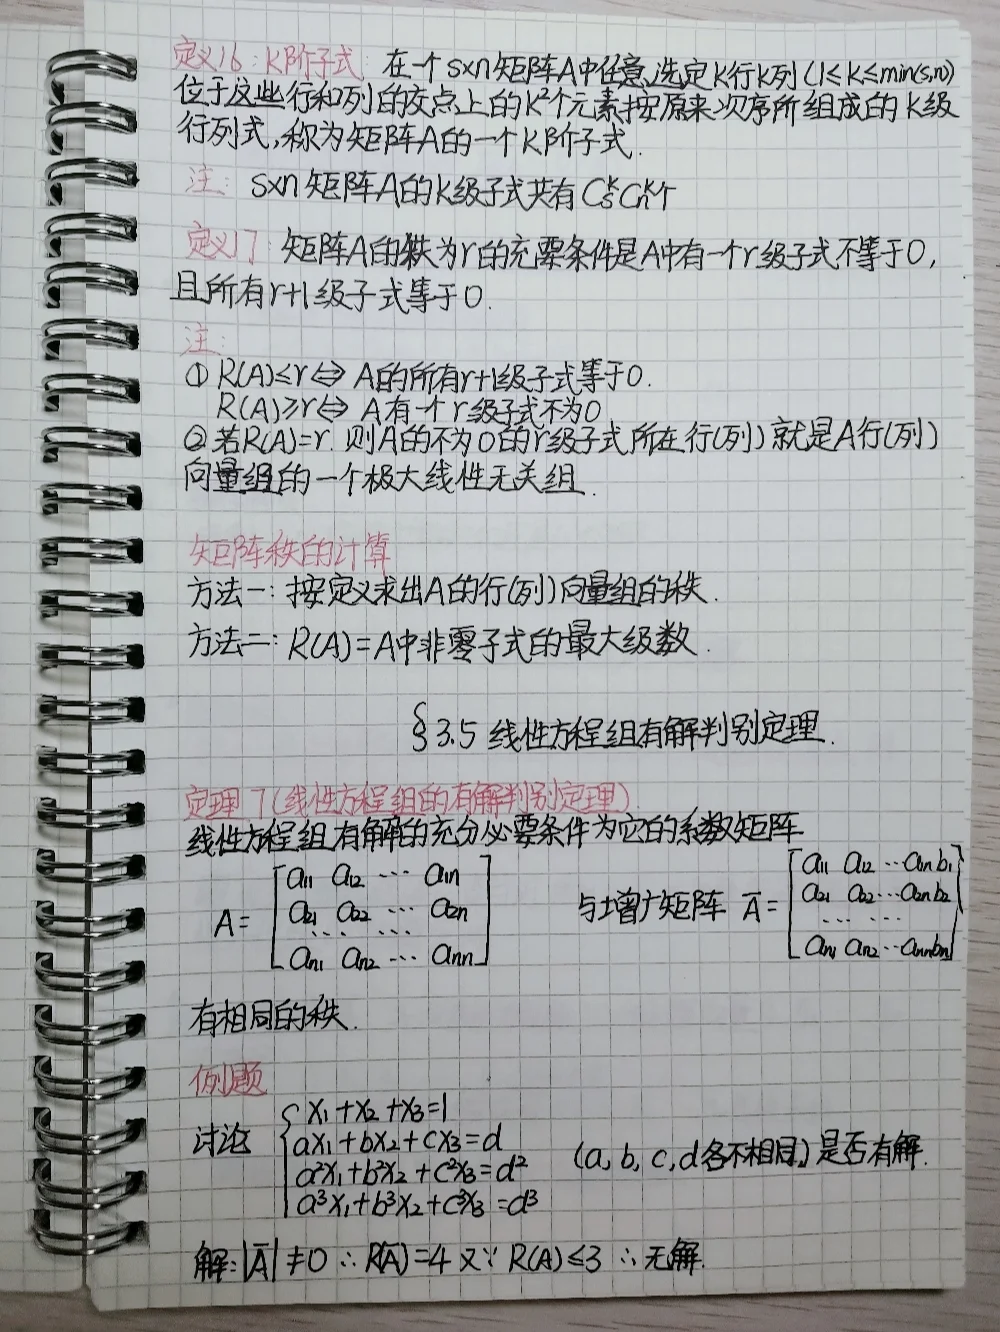 定义16：K阶子式 在一个s×n矩阵A中任意选定K行K列(1≤K≤min(s,n))
位于这些行和列的交点上的K²个元素按原来次序所组成的K级
行列式,称为矩阵A的一个K阶子式.
注： s×n矩阵A的K级子式共有CₛᵏCₙᵏ个
定义17： 矩阵A的秩为r的充要条件是A中有一个r级子式不等于0,
且所有r+1级子式等于0.
注：
① R(A)≤r⇔A的所有r+1级子式等于0.
R(A)≥r⇔A有一个r级子式不为0
②若R(A)=r.则A的不为0的r级子式所在行(列)就是A行(列)
向量组的一个极大线性无关组.
矩阵秩的计算
方法一:按定义求出A的行(列)向量组的秩.
方法二:R(A)=A中非零子式的最大级数.
§3.5 线性方程组有解判别定理.
定理7(线性方程组的有解判别定理)
线性方程组有解的充分必要条件为它的系数矩阵
A= [a₁₁ a₁₂ … a₁ₙ
a₂₁ a₂₂ … a₂ₙ
… …
aₙ₁ aₙ₂ … aₙₙ]
与增广矩阵 A̅= [a₁₁ a₁₂ … a₁ₙ b₁
a₂₁ a₂₂ … a₂ₙ b₂
… …
aₙ₁ aₙ₂ … aₙₙ bₙ]
有相同的秩.
例题
讨论 { x₁+x₂+x₃=1
ax₁+bx₂+cx₃=d
a²x₁+b²x₂+c²x₃=d²
a³x₁+b³x₂+c³x₃=d³
(a,b,c,d各不相同)是否有解.
解:|A̅|≠0 ∴R(A̅)=4 又∵R(A)≤3 ∴无解.